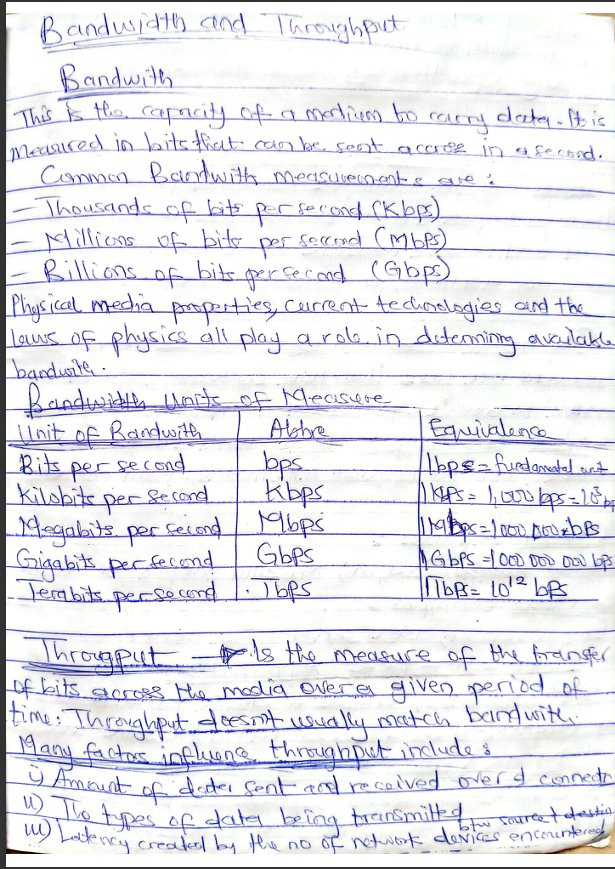 Bandwidth and Throughput
Bandwith
This is the capacity of a medium to carry data. It is
measured in bits that can be sent across in a second.
Common Bandwith measurements are :
- Thousands of bits per second (Kbps)
- Millions of bits per second (Mbps)
- Billions of bits per second (Gbps)
Physical media properties, current technologies and the
laws of physics all play a role in determing available
bandwith.
Bandwidth Units of Measure
Unit of Bandwith Abbre Equivalence
Bits per second bps 1bps = fundamental unit
Kilobits per second Kbps 1Kbps = 1,000 bps = 10³ bps
Megabits per second Mbps 1Mbps = 1000 000 bps
Gigabits per second Gbps 1Gbps = 1000 000 000 bps
Terabits per second . Tbps 1Tbps = 10¹² bps
Througput → Is the measure of the transfer
of bits across the media over a given period of
time: Throughput doesn't usually match bandwith.
Many factors influence throughput include :
i) Amount of data sent and received over a connectn
ii) The types of data being transmitted
iii) Latency created by the no of network devices encountered
btw source & destin